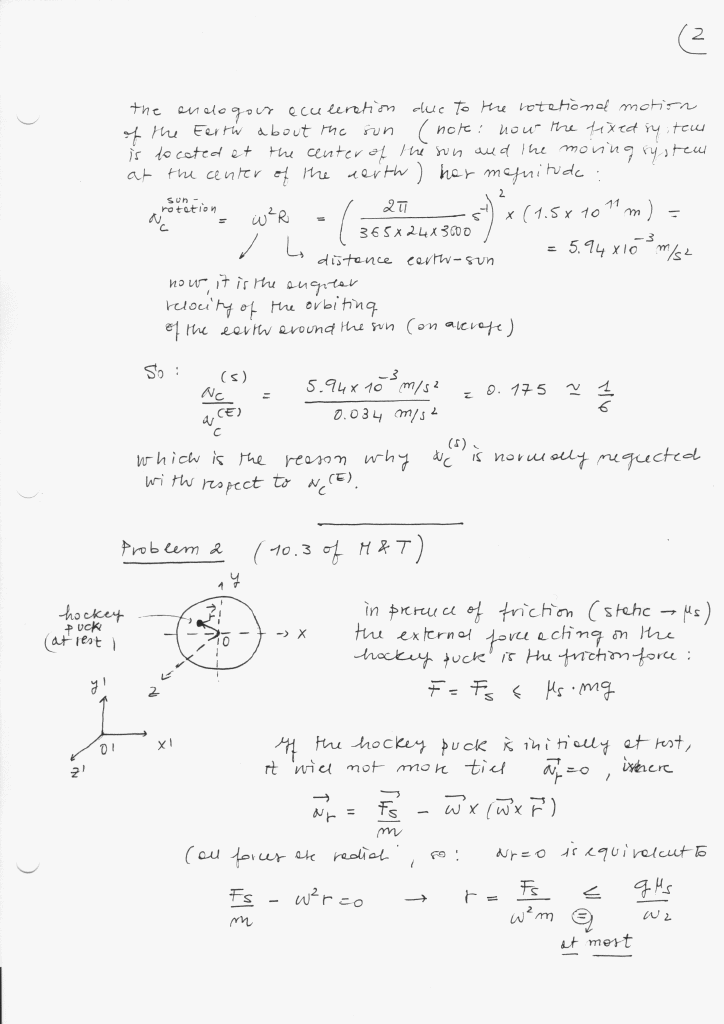 (2
the analogous acceleration due to the rotational motion
of the Earth about the sun (note: now the fixed system
is located at the center of the sun and the moving system
at the center of the earth) has magnitude:
a_c^{sun-rotation} = ω²R = (2π / 365×24×3600 s⁻¹)² × (1.5 × 10¹¹ m) =
distance earth-sun = 5.94 ×10⁻³ m/s²
now, it is the angular
velocity of the orbiting
of the earth around the sun (on average)
So: a_c^(S) / a_c^(E) = 5.94 × 10⁻³ m/s² / 0.034 m/s² = 0.175 ≃ 1/6
which is the reason why a_c^(S) is normally neglected
with respect to a_c^(E).
Problem 2 (10.3 of M&T)
y
hockey
puck
(at rest)
r⃗
0
x
z
y'
0'
x'
z'
in presence of friction (static → μs)
the external force acting on the
hockey puck is the friction force:
F = Fs ≤ μs·mg
If the hockey puck is initially at rest,
it will not move till a⃗r=0, where
a⃗r = F⃗s/m − ω⃗ × (ω⃗ × r⃗)
(all forces are radial, so: ar=0 is equivalent to
Fs/m − ω²r=0 → r = Fs/ω²m ≤ gμs/ω2
(=)
at most